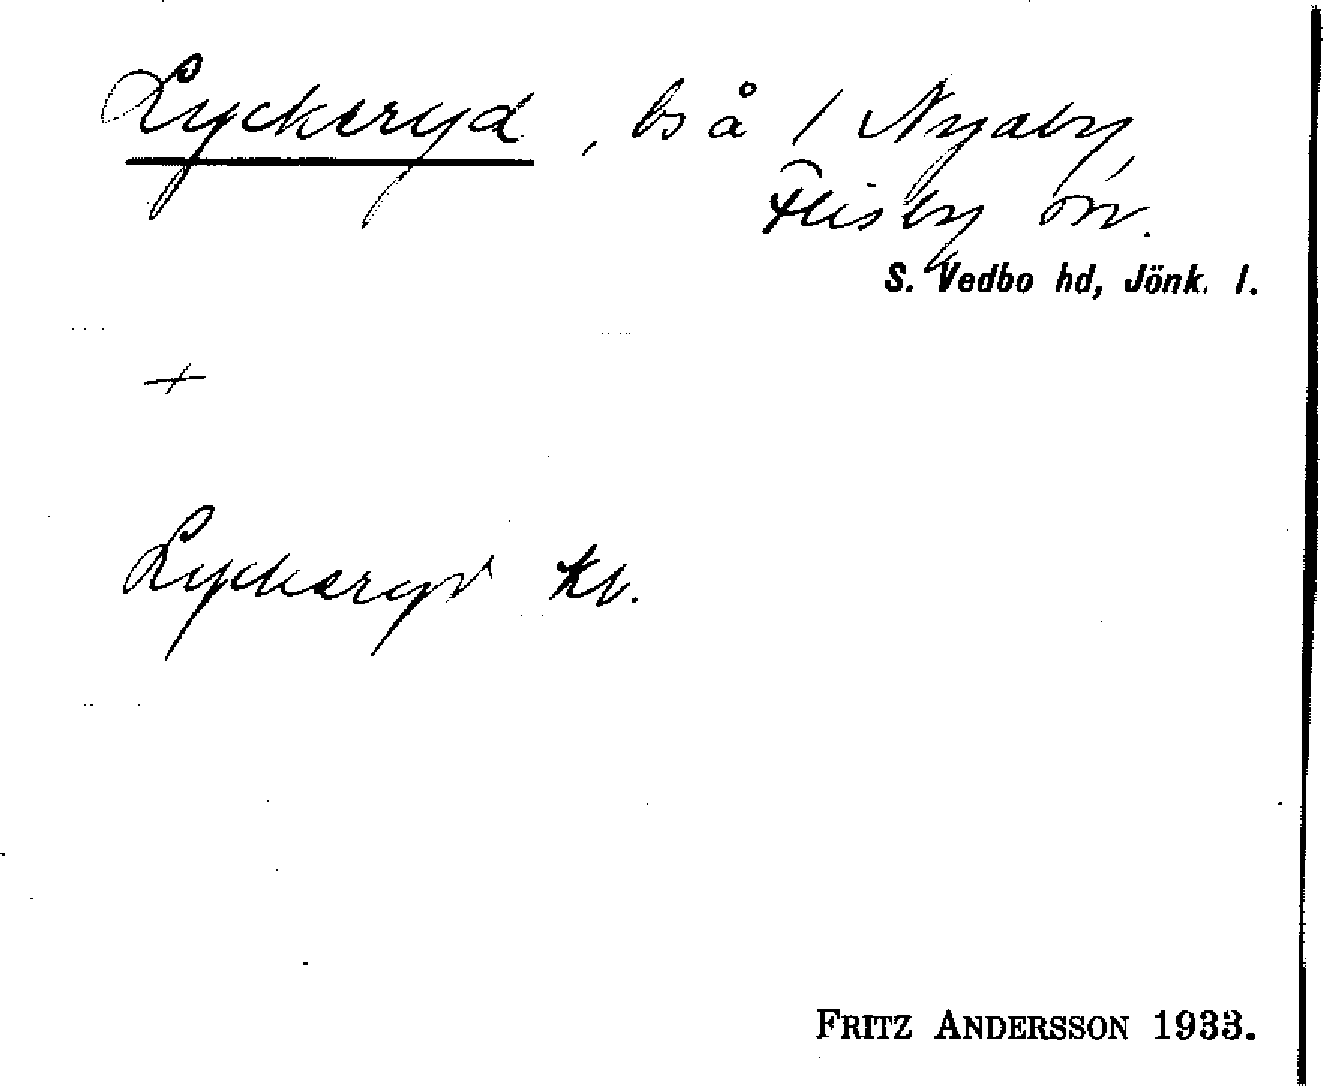 Lyckeryd, bs å / Nyaby,
Flisby sn.
S. Vedbo hd, Jönk. l.
+
Lyckeryd Kb.
FRITZ ANDERSSON 1933.